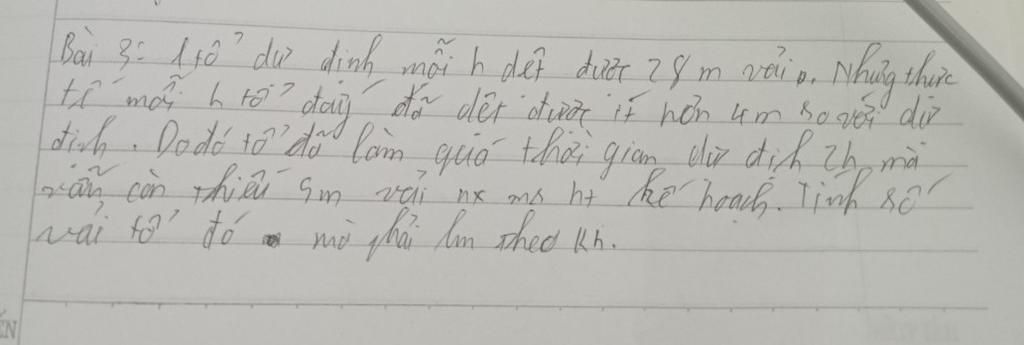 Bài 3: 1 tổ dự định mỗi h dệt được 28 m vải. Nhưng thực
tế mỗi h tổ đấy đã dệt được ít hơn 4m so với dự
định. Do đó tổ đã làm quá thời gian dự địh 2h mà
vẫn còn thiếu 9m vải nx ms ht kế hoạch. Tính số
vải tổ đó mà phải lm theo kh.